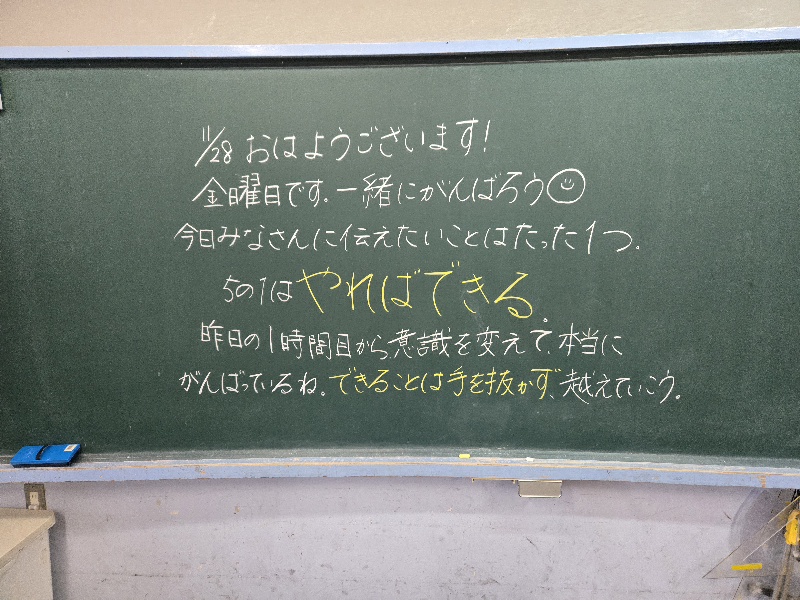 11/28 おはようございます!
金曜日です.一緒にがんばろう
今日みなさんに伝えたいことはたった1つ.
5の1はやればできる。
昨日の1時間目から意識を変えて、本当に
がんばっているね。できることは手を抜かず、越えていこう。